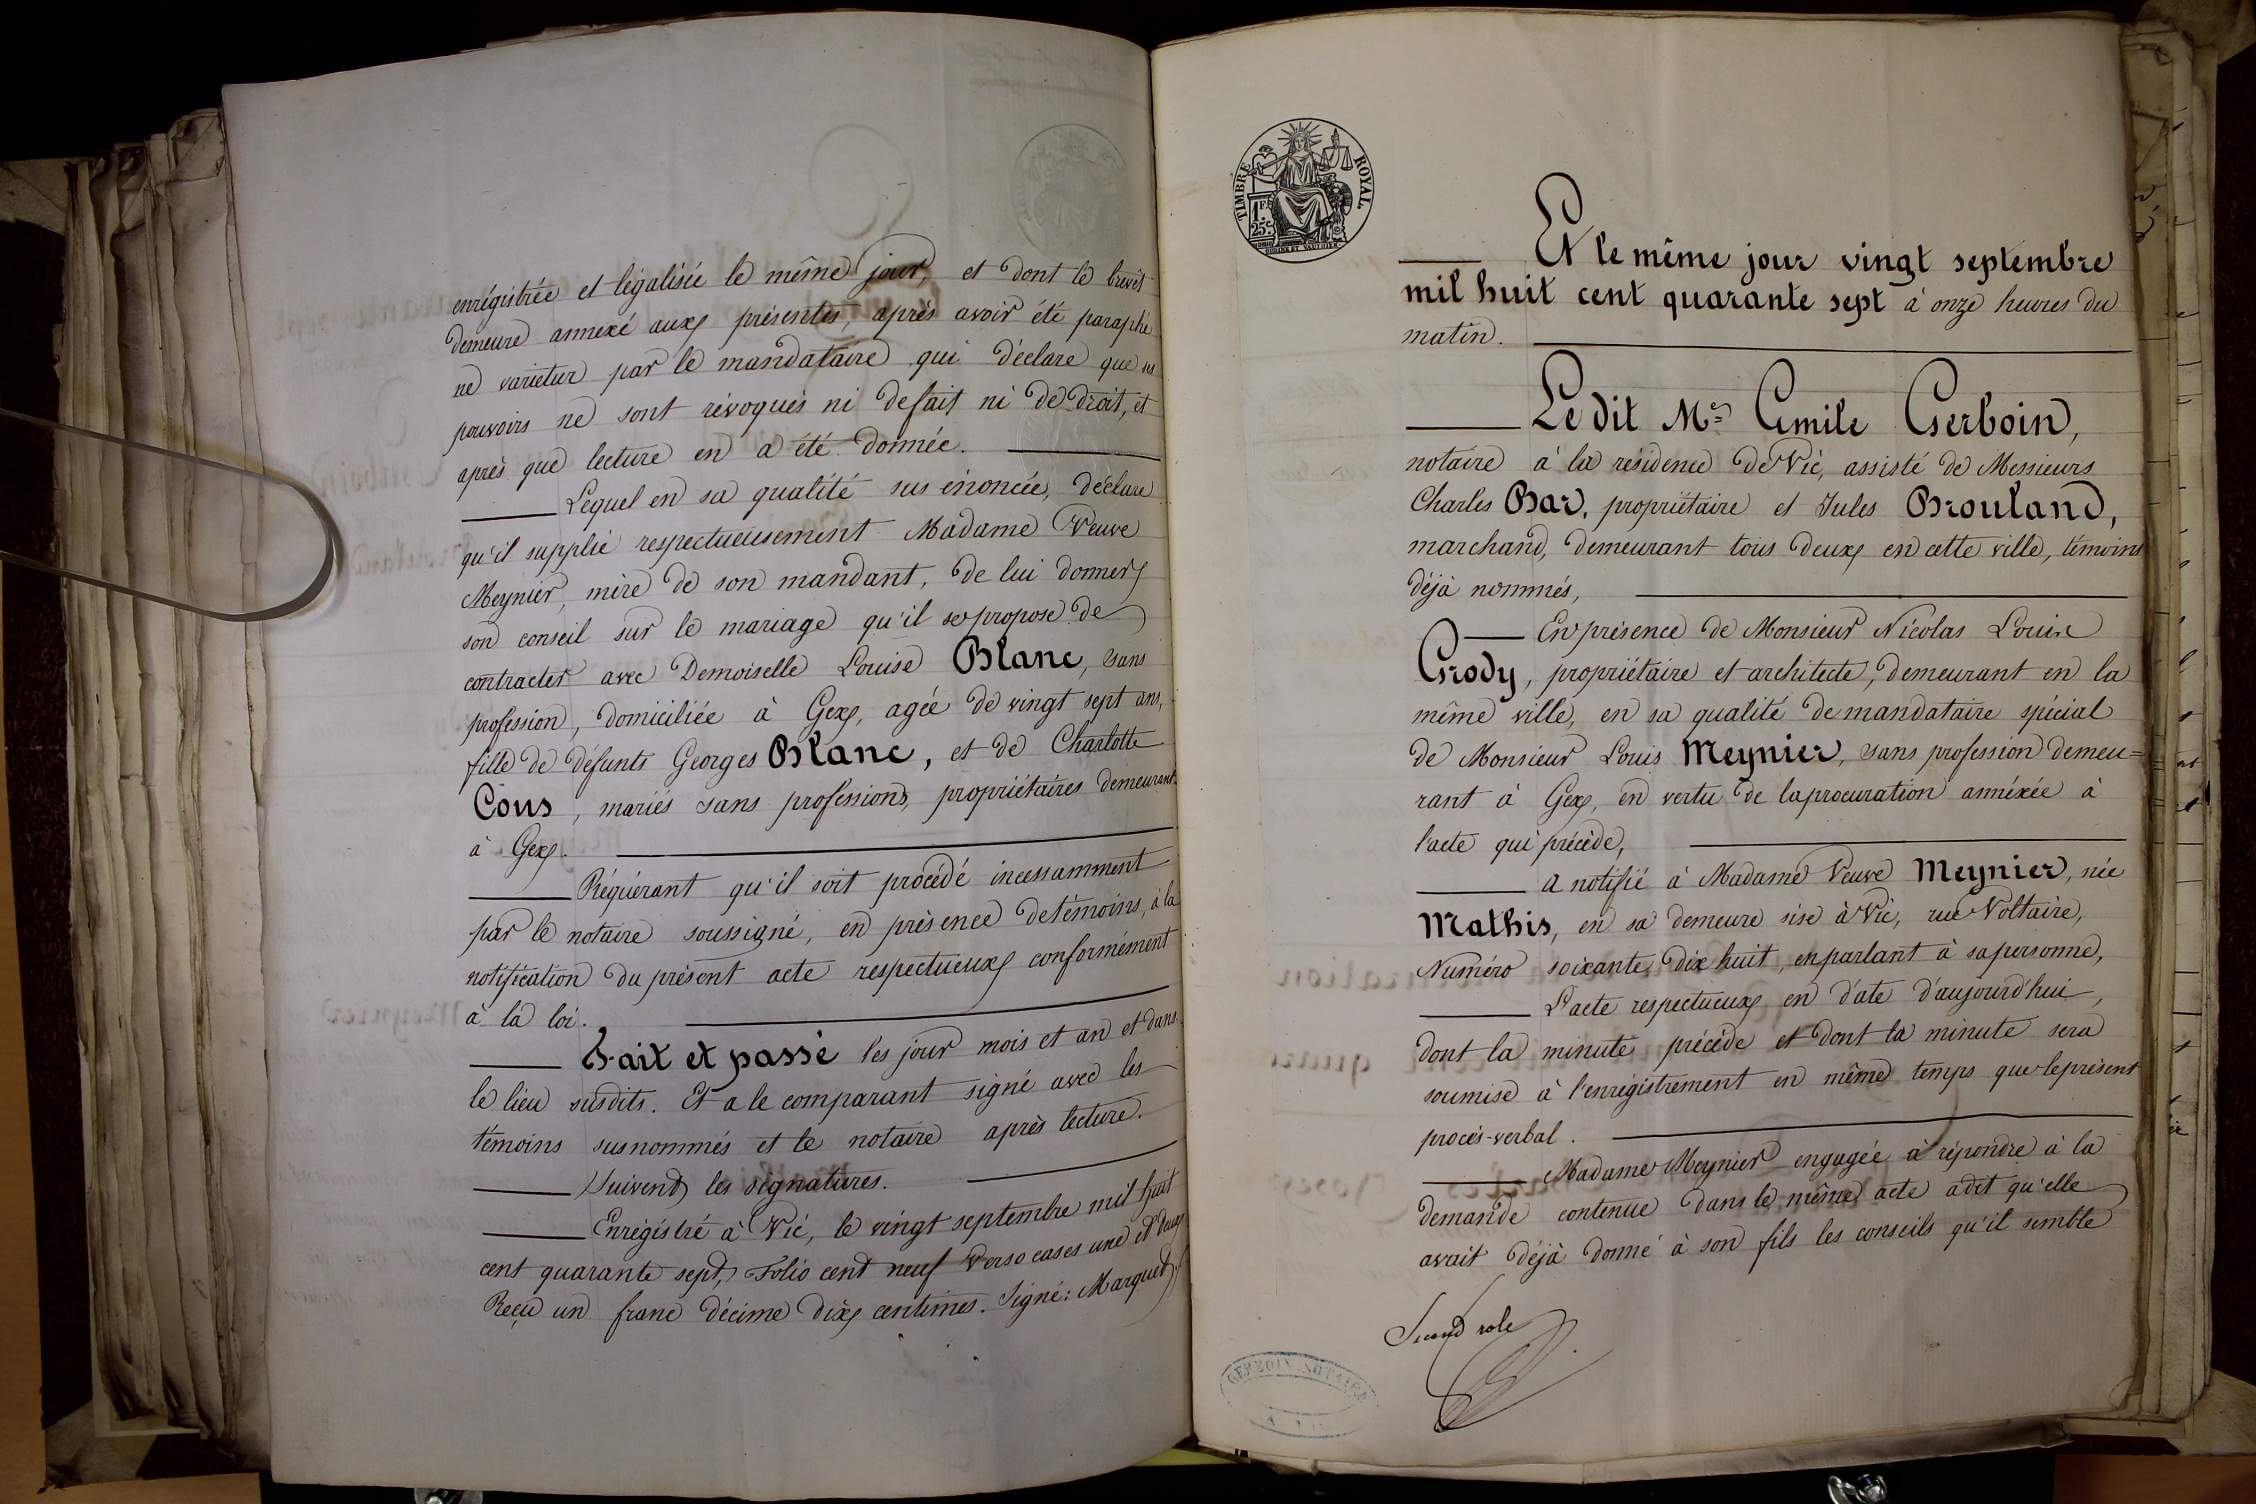 enrégistrée et légalisée le même jour, et dont le brevet
demeure annexé aux présentes, après avoir été paraphé
ne varietur par le mandataire qui déclare que ses
pouvoirs ne sont révoqués ni de fait ni de droit, et
après que lecture en a été donnée.
Lequel en sa qualité sus énoncée, déclare
qu'il supplie respectueusement Madame Veuve
Meynier, mère de son mandant, de lui donner
son conseil sur le mariage qu'il se propose de
contracter avec Demoiselle Louise Blanc, sans
profession, domiciliée à Gex, agée de vingt sept ans,
fille de défunts Georges Blanc, et de Charlotte
Cous, mariés sans profession, propriétaires demeurant
à Gex.
Réquérant qu'il soit procédé incessamment
par le notaire soussigné, en présence de témoins, à la
notification du présent acte respectueux conformément
à la loi.
Fait et passé les jour mois et an et dans
le lieu susdits. Et a le comparant signé avec les
témoins susnommés et le notaire après lecture.
Suivent les signatures.
Enrégistré à Vic, le vingt septembre mil huit
cent quarante sept, Folio cent neuf verso cases une et deux
Reçu un franc décime dix centimes. Signé: Marquet
TIMBRE ROYAL
1F. 25c.
Et le même jour vingt septembre
mil huit cent quarante sept à onze heures du
matin.
Le dit Me. Emile Gerboin,
notaire à la résidence de Vic, assisté de Messieurs
Charles Bar, propriétaire et Jules Brouland,
marchand, demeurant tous deux en cette ville, témoins
déjà nommés,
En présence de Monsieur Nicolas Louis
Grody, propriétaire et architecte, demeurant en la
même ville, en sa qualité de mandataire spécial
de Monsieur Louis Meynier, sans profession demeu=
rant à Gex, en vertu de la procuration annéxée à
l'acte qui précède,
a notifié à Madame Veuve Meynier, née
Mathis, en sa demeure sise à Vic, rue Voltaire,
Numéro soixante dix huit, en parlant à sa personne,
L'acte respectueux en date d'aujourd'hui,
dont la minute précède et dont la minute sera
soumise à l'enrégistrement en même temps que le présent
procès-verbal.
Madame Meynier engagée à répondre à la
demande contenue dans le même acte a dit qu'elle
avait déjà donné à son fils les conseils qu'il semble
Second role
GERBOIN NOTAIRE
A VIC